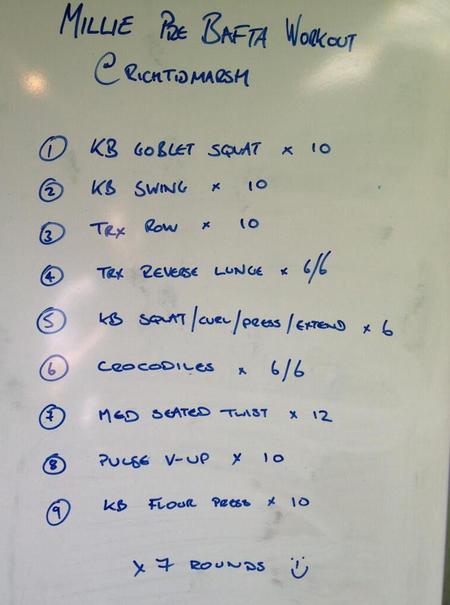 MILLIE PRE BAFTA WORKOUT
@RICHTIDMARSH
1 KB GOBLET SQUAT x 10
2 KB SWING x 10
3 TRX ROW x 10
4 TRX REVERSE LUNGE x 6/6
5 KB SQUAT/CURL/PRESS/EXTEND x 6
6 CROCODILES x 6/6
7 MED SEATED TWIST x 12
8 PULSE V-UP x 10
9 KB FLOUR PRESS x 10
x 7 ROUNDS :)